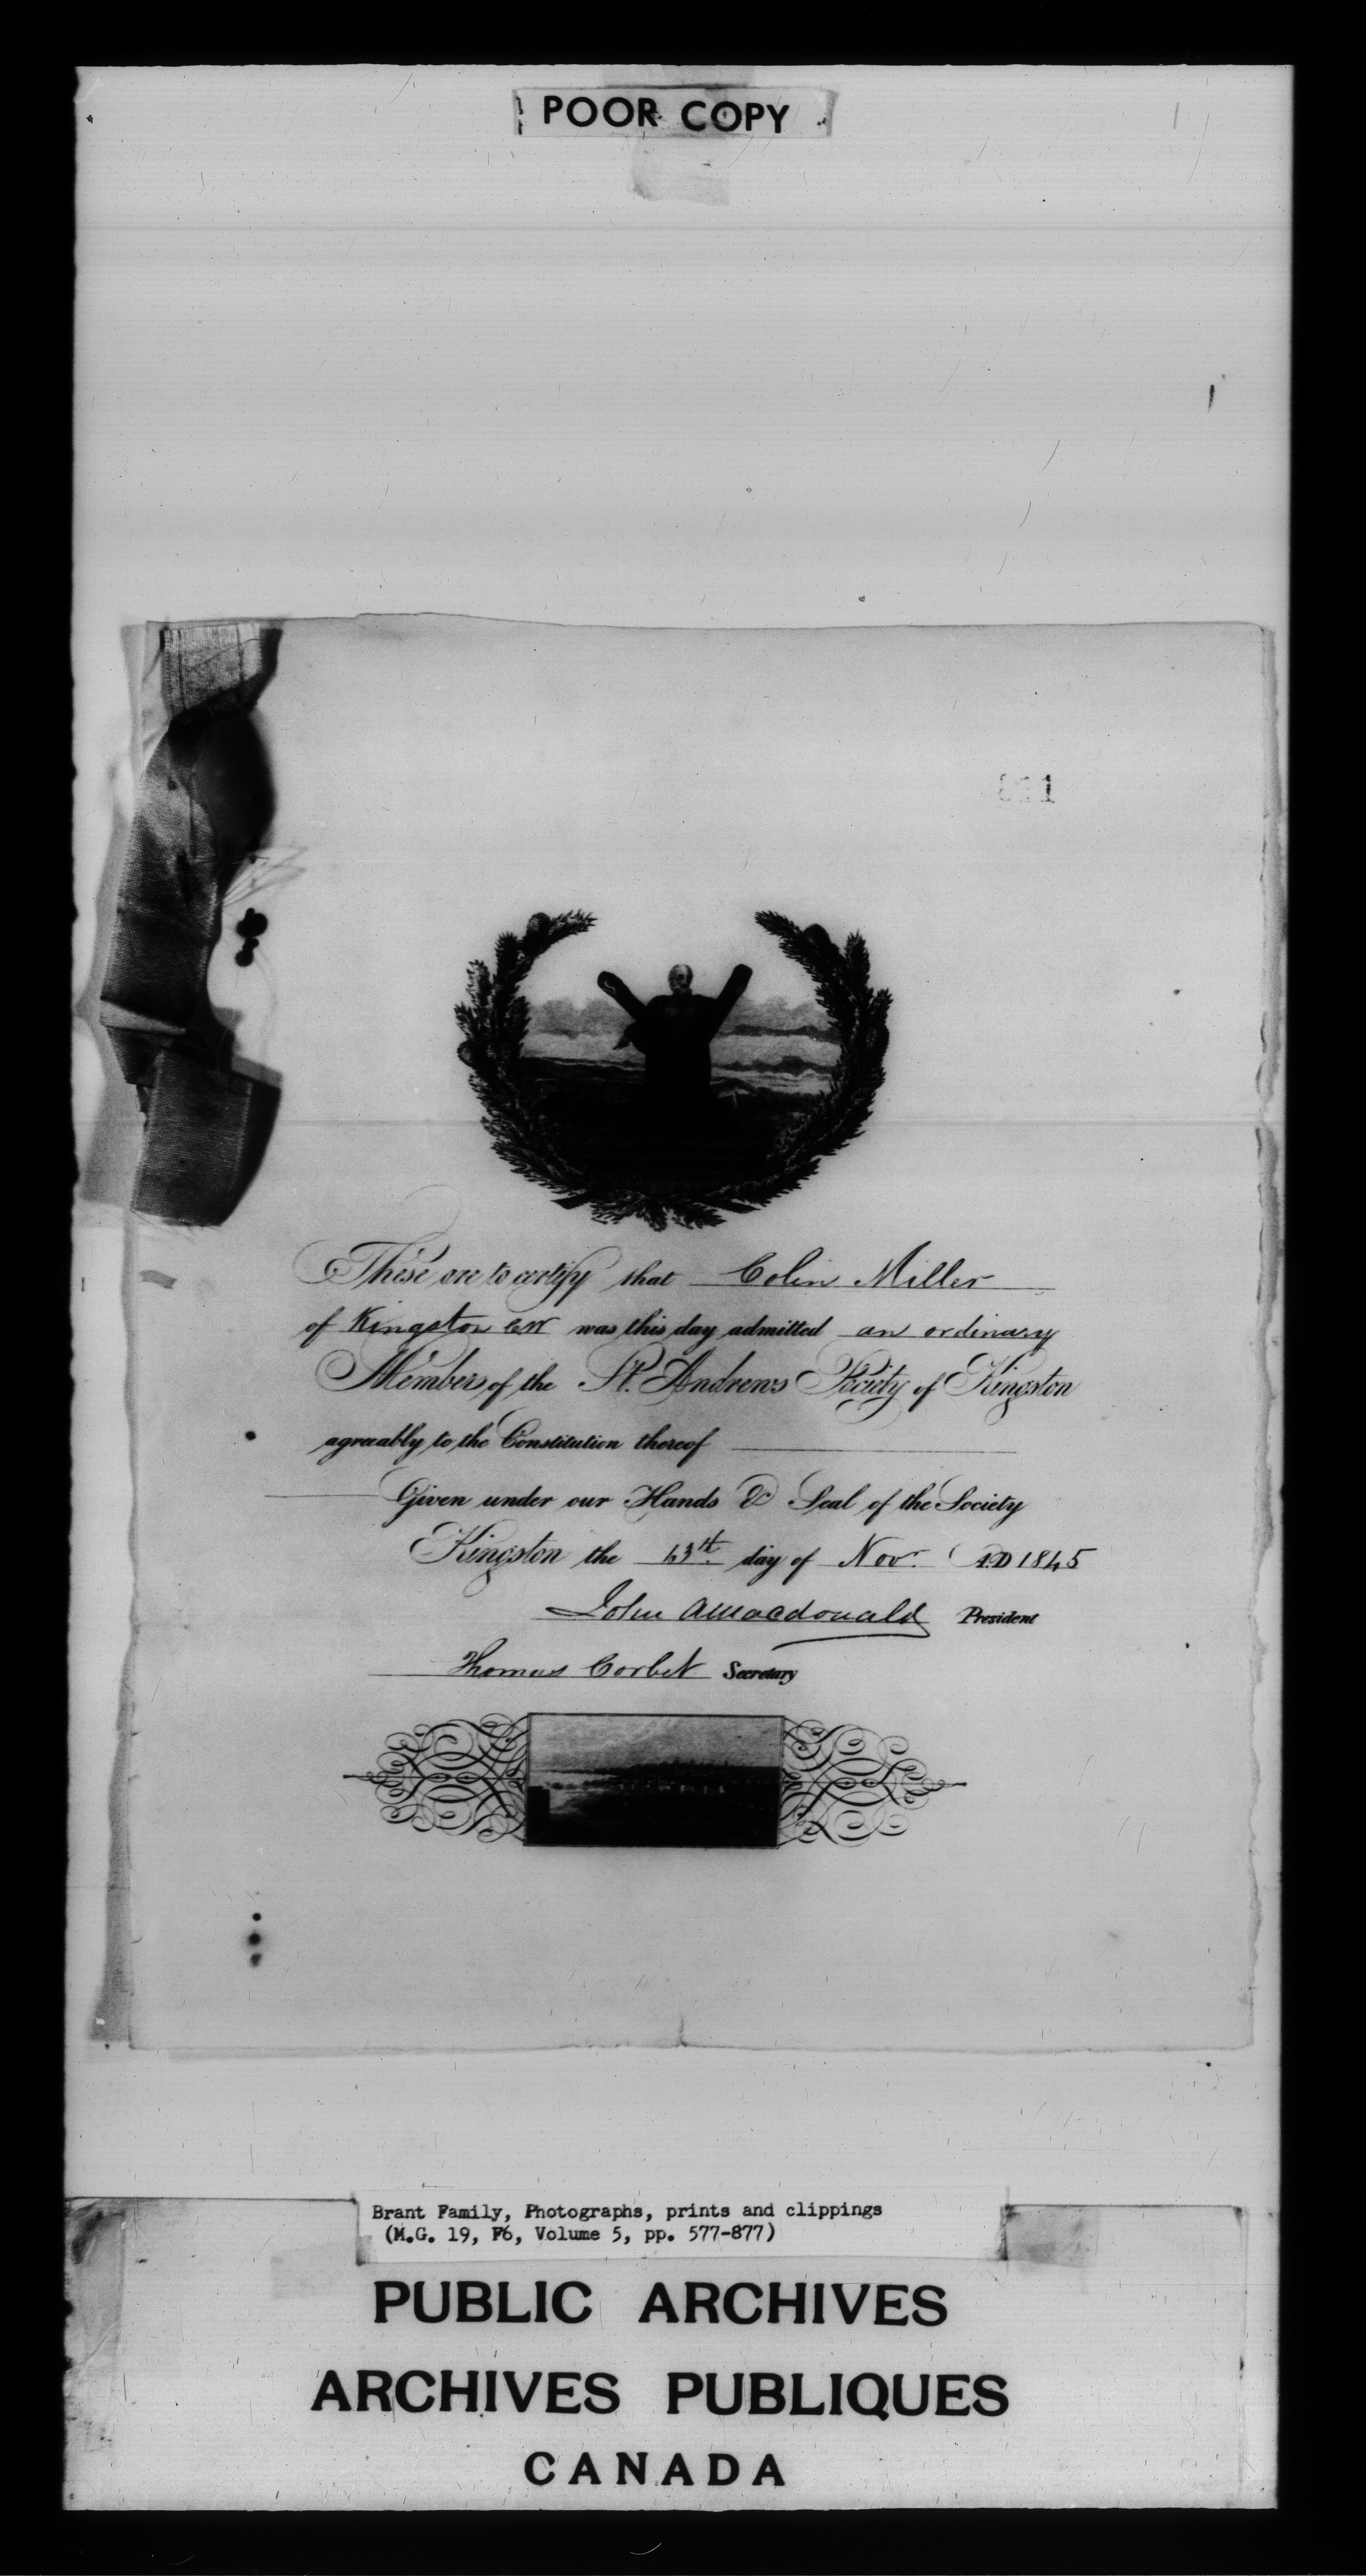 POOR COPY
These are to certify that Colin Miller
of Kingston C.W was this day admitted an ordinary
Members of the St. Andrews Society of Kingston
agreeably to the Constitution thereof
Given under our Hands & Seal of the Society
Kingston the 13th. day of Novr. A.D 1845
John A Macdonald President
Thomas Corbet Secretary
Brant Family, Photographs, prints and clippings
(M.G. 19, F6, Volume 5, pp. 577-877)
PUBLIC ARCHIVES
ARCHIVES PUBLIQUES
CANADA